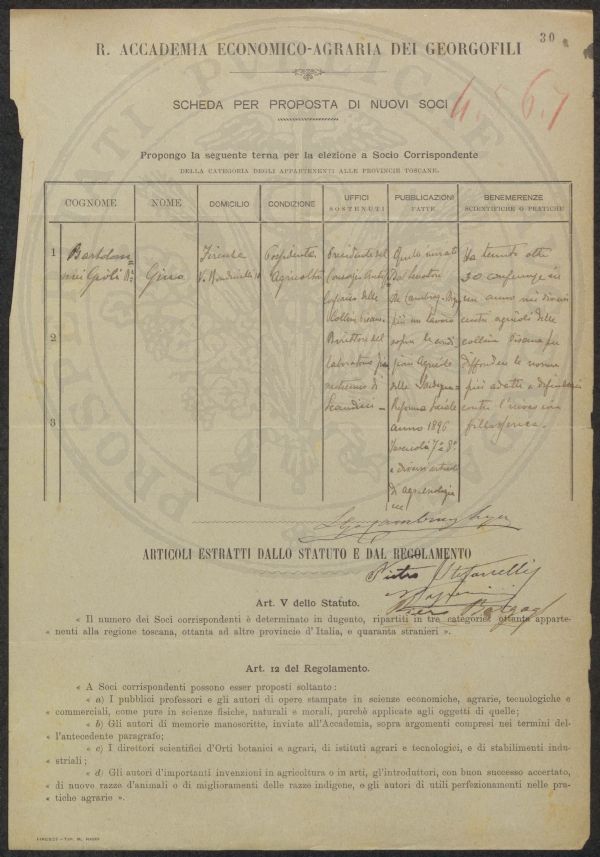 30
R. ACCADEMIA ECONOMICO-AGRARIA DEI GEORGOFILI
SCHEDA PER PROPOSTA DI NUOVI SOCI
4. 5 6. 7
Propongo la seguente terna per la elezione a Socio Corrispondente
DELLA CATEGORIA DEGLI APPARTENENTI ALLE PROVINCIE TOSCANE.
COGNOME NOME DOMICILIO CONDIZIONE UFFICI SOSTENUTI PUBBLICAZIONI FATTE BENEMERENZE SCIENTIFICHE O PRATICHE
1
2
3
Bartolom=
mei Gioli
Gino
Firenze
Possidente
Agricoltore
Presidente del
delle
Colline Pisane
Direttore del
Laboratorio
di
Scandicci
senatore
De Cambray Digny
più un lavoro
sopra le condi
zioni Agricole
della Sardegna
Riforma Sociale
anno 1896
e diversi articoli
di agr. enologia
Ha tenuto oltre
30 conferenze in
un anno nei diversi
centri agricoli delle
colline Pisane per
diffondere le norme
più adatte a difendersi
contro l'invasione
fillosserica.
ARTICOLI ESTRATTI DALLO STATUTO E DAL REGOLAMENTO
Pietro Stefanelli
Art. V dello Statuto.
« Il numero dei Soci corrispondenti è determinato in dugento, ripartiti in tre categorie: ottanta apparte-
nenti alla regione toscana, ottanta ad altre provincie d'Italia, e quaranta stranieri ».
Art. 12 del Regolamento.
« A Soci corrispondenti possono esser proposti soltanto:
« a) I pubblici professori e gli autori di opere stampate in scienze economiche, agrarie, tecnologiche e
« commerciali, come pure in scienze fisiche, naturali e morali, purchè applicate agli oggetti di quelle;
« b) Gli autori di memorie manoscritte, inviate all'Accademia, sopra argomenti compresi nei termini del-
l'antecedente paragrafo;
« c) I direttori scientifici d'Orti botanici e agrari, di istituti agrari e tecnologici, e di stabilimenti indu-
striali;
« d) Gli autori d'importanti invenzioni in agricoltura o in arti, gl'introduttori, con buon successo accertato,
di nuove razze d'animali o di miglioramenti delle razze indigene, e gli autori di utili perfezionamenti nelle pra-
« tiche agrarie ».